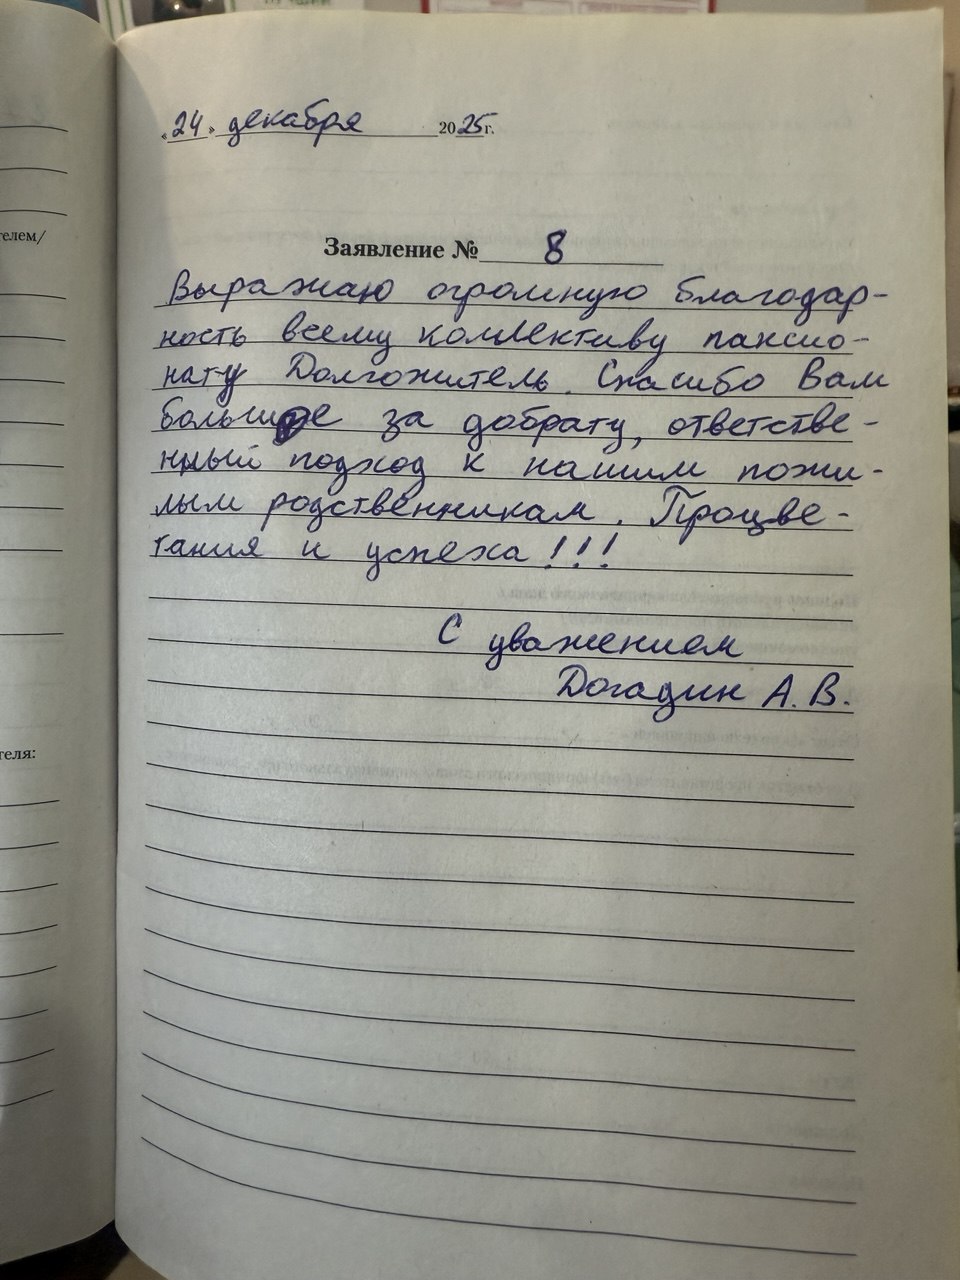 «24» декабря 2025г.
Заявление № 8
Выражаю огромную благодар-
ность всему коллективу пансио-
нату Долгожитель. Спасибо Вам
большое за доброту, ответстве-
нный подход к нашим пожи-
лым родственникам. Процве-
тания и успеха!!!
С уважением
Догадин А.В.
телем/
теля: